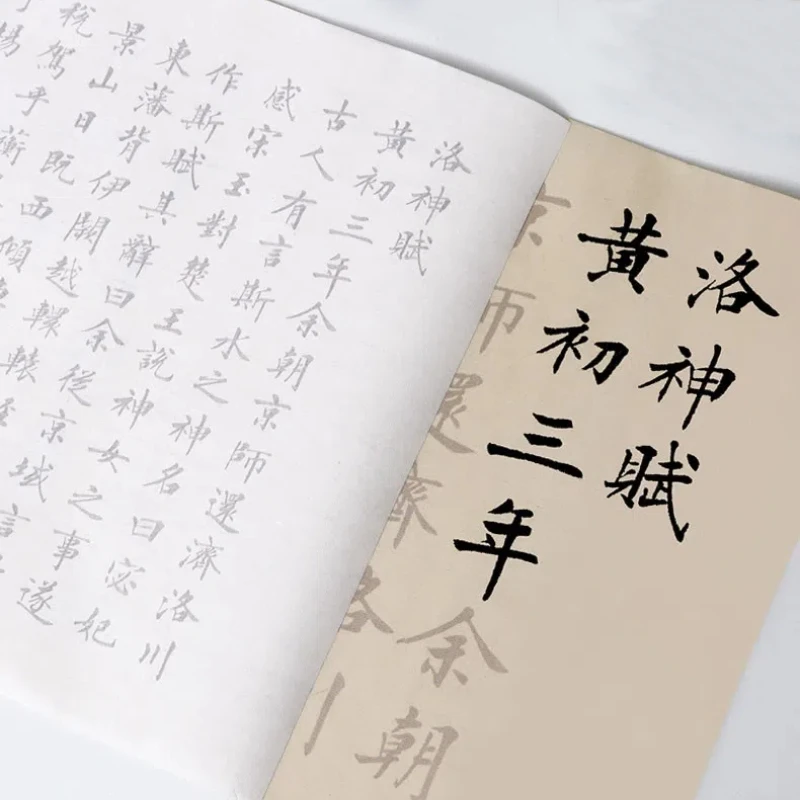 洛神賦
黃初三年余朝
京師還濟洛
洛神賦
黃初三年余朝京師還濟洛川
古人有言斯水之神名曰宓妃
感宋玉對楚王說神女之事遂
作斯賦其辭曰余從京域言
東藩背伊闕越轘轅
景山日既西傾
稅駕乎蘅